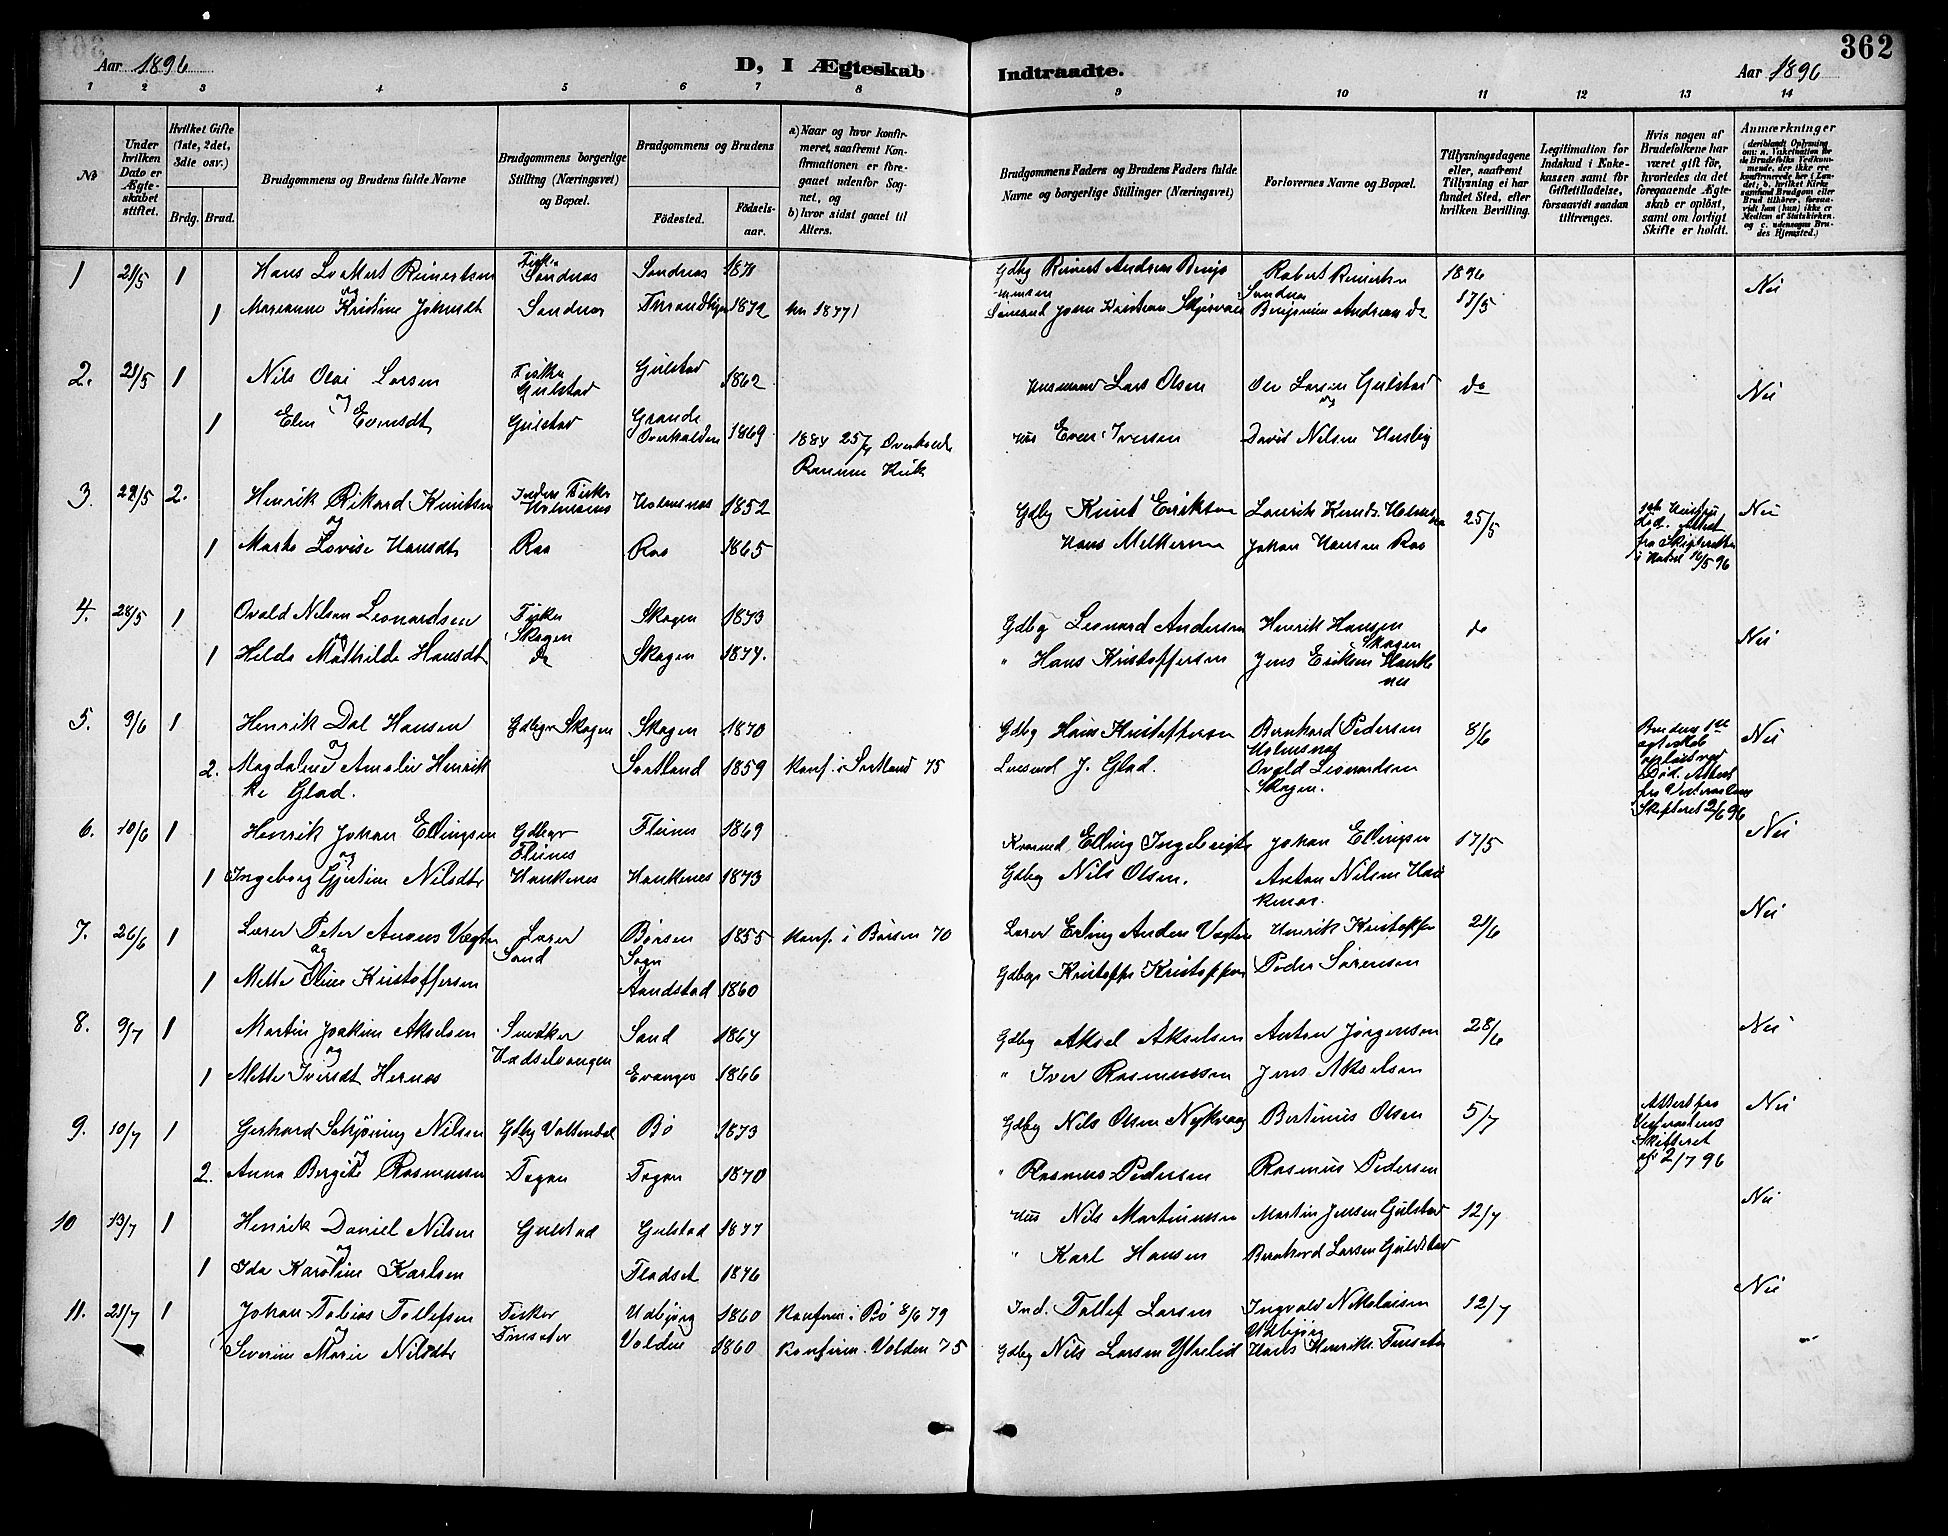 362
Aar 1896
D, I Ægteskab Indtraadte.
Aar 1896
1 2 3 4 5 6 7 8 9 10 11 12 13 14
No
Under hvilken Dato er Ægteskabet stiftet.
Hvilket Gifte (1ste, 2det, 3die osv.)
Brdg. Brud.
Brudgommens og Brudens fulde Navne
Brudgommens borgerlige Stilling (Næringsvei) og Bopæl.
Brudgommens og Brudens
Fødested.
Fødselsaar.
a) Naar og hvor konfirmeret, saafremt Konfirmationen er foregaaet udenfor Sognet, og
b) hvor sidst gaaet til Alters.
Brudgommens Faders og Brudens Faders fulde Navne og borgerlige Stillinger (Næringsvei)
Forlovernes Navne og Bopæl.
Tillysningsdagene eller, saafremt Tillysning ei har fundet Sted, efter hvilken Bevilling.
Legitimation for Indskud i Enkekassen samt for Giftetilladelse, forsaavidt saadan tiltrænges.
Hvis nogen af Brudefolkene har været gift før, hvorledes da det foregaaende Ægteskab er opløst, samt om lovligt Skifte er holdt.
Anmærkninger (deriblandt Oplysning om: a. Vakcination for de Brudefolks Vedkommende, der ikke ere konfirmerede her i Landet; b. hvilket Kirkesamfund Brudgom eller Brud tilhører, forsaavidt han (hun) ikke er Medlem af Statskirken. og c. udensogns Brudes Hjemsted.)
1 21/5 1 Hans Lockert Reinertsen Fisker Sandnes Sandnes 1871 Gdbg Reinert Andreas Benjaminsen Robert Reinertsen Sandnes 1896 17/5 Nei
og
1 Marianne Kristine Johnsdt Sandnes 1872 John Kristian Benjamin Andreas do
2. 21/5 1 Nils Olai Larsen Fisker Gulstad Gulstad 1862 Husmand Lars Olsen Ole Larsen Gulstad do Nei
og
1 Elen Evensdt Gulstad Grande Overhalden 1869 1884 25/ Overhalde Ranem Kirk Hus Even Iversen David Nilsen Husby
3. 28/5 2. Henrik Rikard Knutsen Fisker Holmsnes Holmsnes 1852 Gdbg Knut Eriksen Laurits Knuds. Holmsnes 25/5 Attest fra Skifteretten i Hadsel 16/5 96 Nei
og
1 Marta Lovise Hansdt Rao Rao 1865 Hans Melkersen Johan Hansen Rao
4. 28/5 1 Ovald Nilsen Leonardsen Fisker Skagen Skagen 1873 Gdbg Leonard Andersen Henrik Hansen Skagen do Nei
og
1 Hilda Mathilde Hansdt do Skagen 1877. " Hans Kristoffersen Jens Eriksen Haukenes
5. 9/6 1 Henrik Dal Hansen Gdbgr Skagen Skagen 1870 Gdbg Hans Kristoffersen Bernhard Pedersen Holmsnes 8/6 Brudens 1ste ægteskab opløst ved Død. Attest fra Vesteraalens Skifteret 2/6 96 Nei
og
2. Magdalene Amalie Henrikke Glad. Sortland 1859 Konf. i Sortland 75 Lensmd J. Glad. Ovald Leonardsen Skagen.
6. 10/6 1 Henrik Johan Ellingsen Gdbgr Fleines Fleines 1869 Elling Ingebrigts Johan Ellingsen 17/5 Nei
og
1 Ingeborg Gjertine Nilsdtr Haukenes Haukenes 1873 Gdbg Nils Olsen. Anton Nilsen Haukenes.
7. 26/6 1 Lærer Peter Vægter Lærer Sand Børsen Sogn 1855 Konf. i Børsen 70 Lærer Erling Anders Vægter Henrik Kristoffer 21/6 Nei
og
1 Mette Oline Kristoffersen Aandstad 1860 Gdbgr Kristoffer Kristoffersen Peder Sørensen
8. 9/7 1 Martin Joakim Akselsen Snedker Hadselvangen Sand 1864 Gdbg Aksel Akselsen Anton Jørgensen 28/6 Nei
og
1 Mette Iversdt Hernes Evanger 1866 " Iver Rasmussen Jens Akselsen
9. 10/7 1 Gerhard Schjøning Nilsen Gdbg Vottendal Bø 1873 Gdbg Nils Olsen Nykvaag Bertinius Olsen 5/7 Attest fra Vesteraalens Skifteret af 2/7 96 Nei
og
2. Anna Bergite Rasmussen Fagan Fagan 1870 " Rasmus Pedersen Rasmus Pedersen
10 13/7 1 Henrik Daniel Nilsen Gulstad Gulstad 1877 Hus Nils Martinussen Martin Jensen Gulstad 12/7 Nei
og
1 Ida Karoline Karlsen Fladset 1876 " Karl Hansen Bernhard Larsen Guldstad
11. 21/7 1 Johan Tobias Tollefsen Fisker Finsæter Udbjørg 1860 Konfirm. i Bø 8/6 79 Ind. Tollef Larsen Ingvald Nikolaisen Udbjørg 12/7 Nei
og
1 Severine Marie Nilsdtr Volden 1860 Konfirm. Volden 75 Gdbg Nils Larsen Ytrelid Henriks. Finsæter